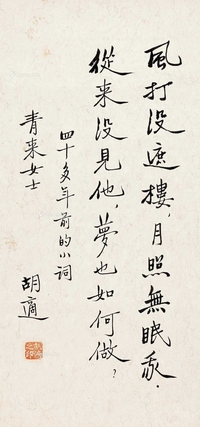 風打没遮樓，月照無眠我。
從来没見他，夢也如何做？
四十多年前的小詞
青来女士
胡適